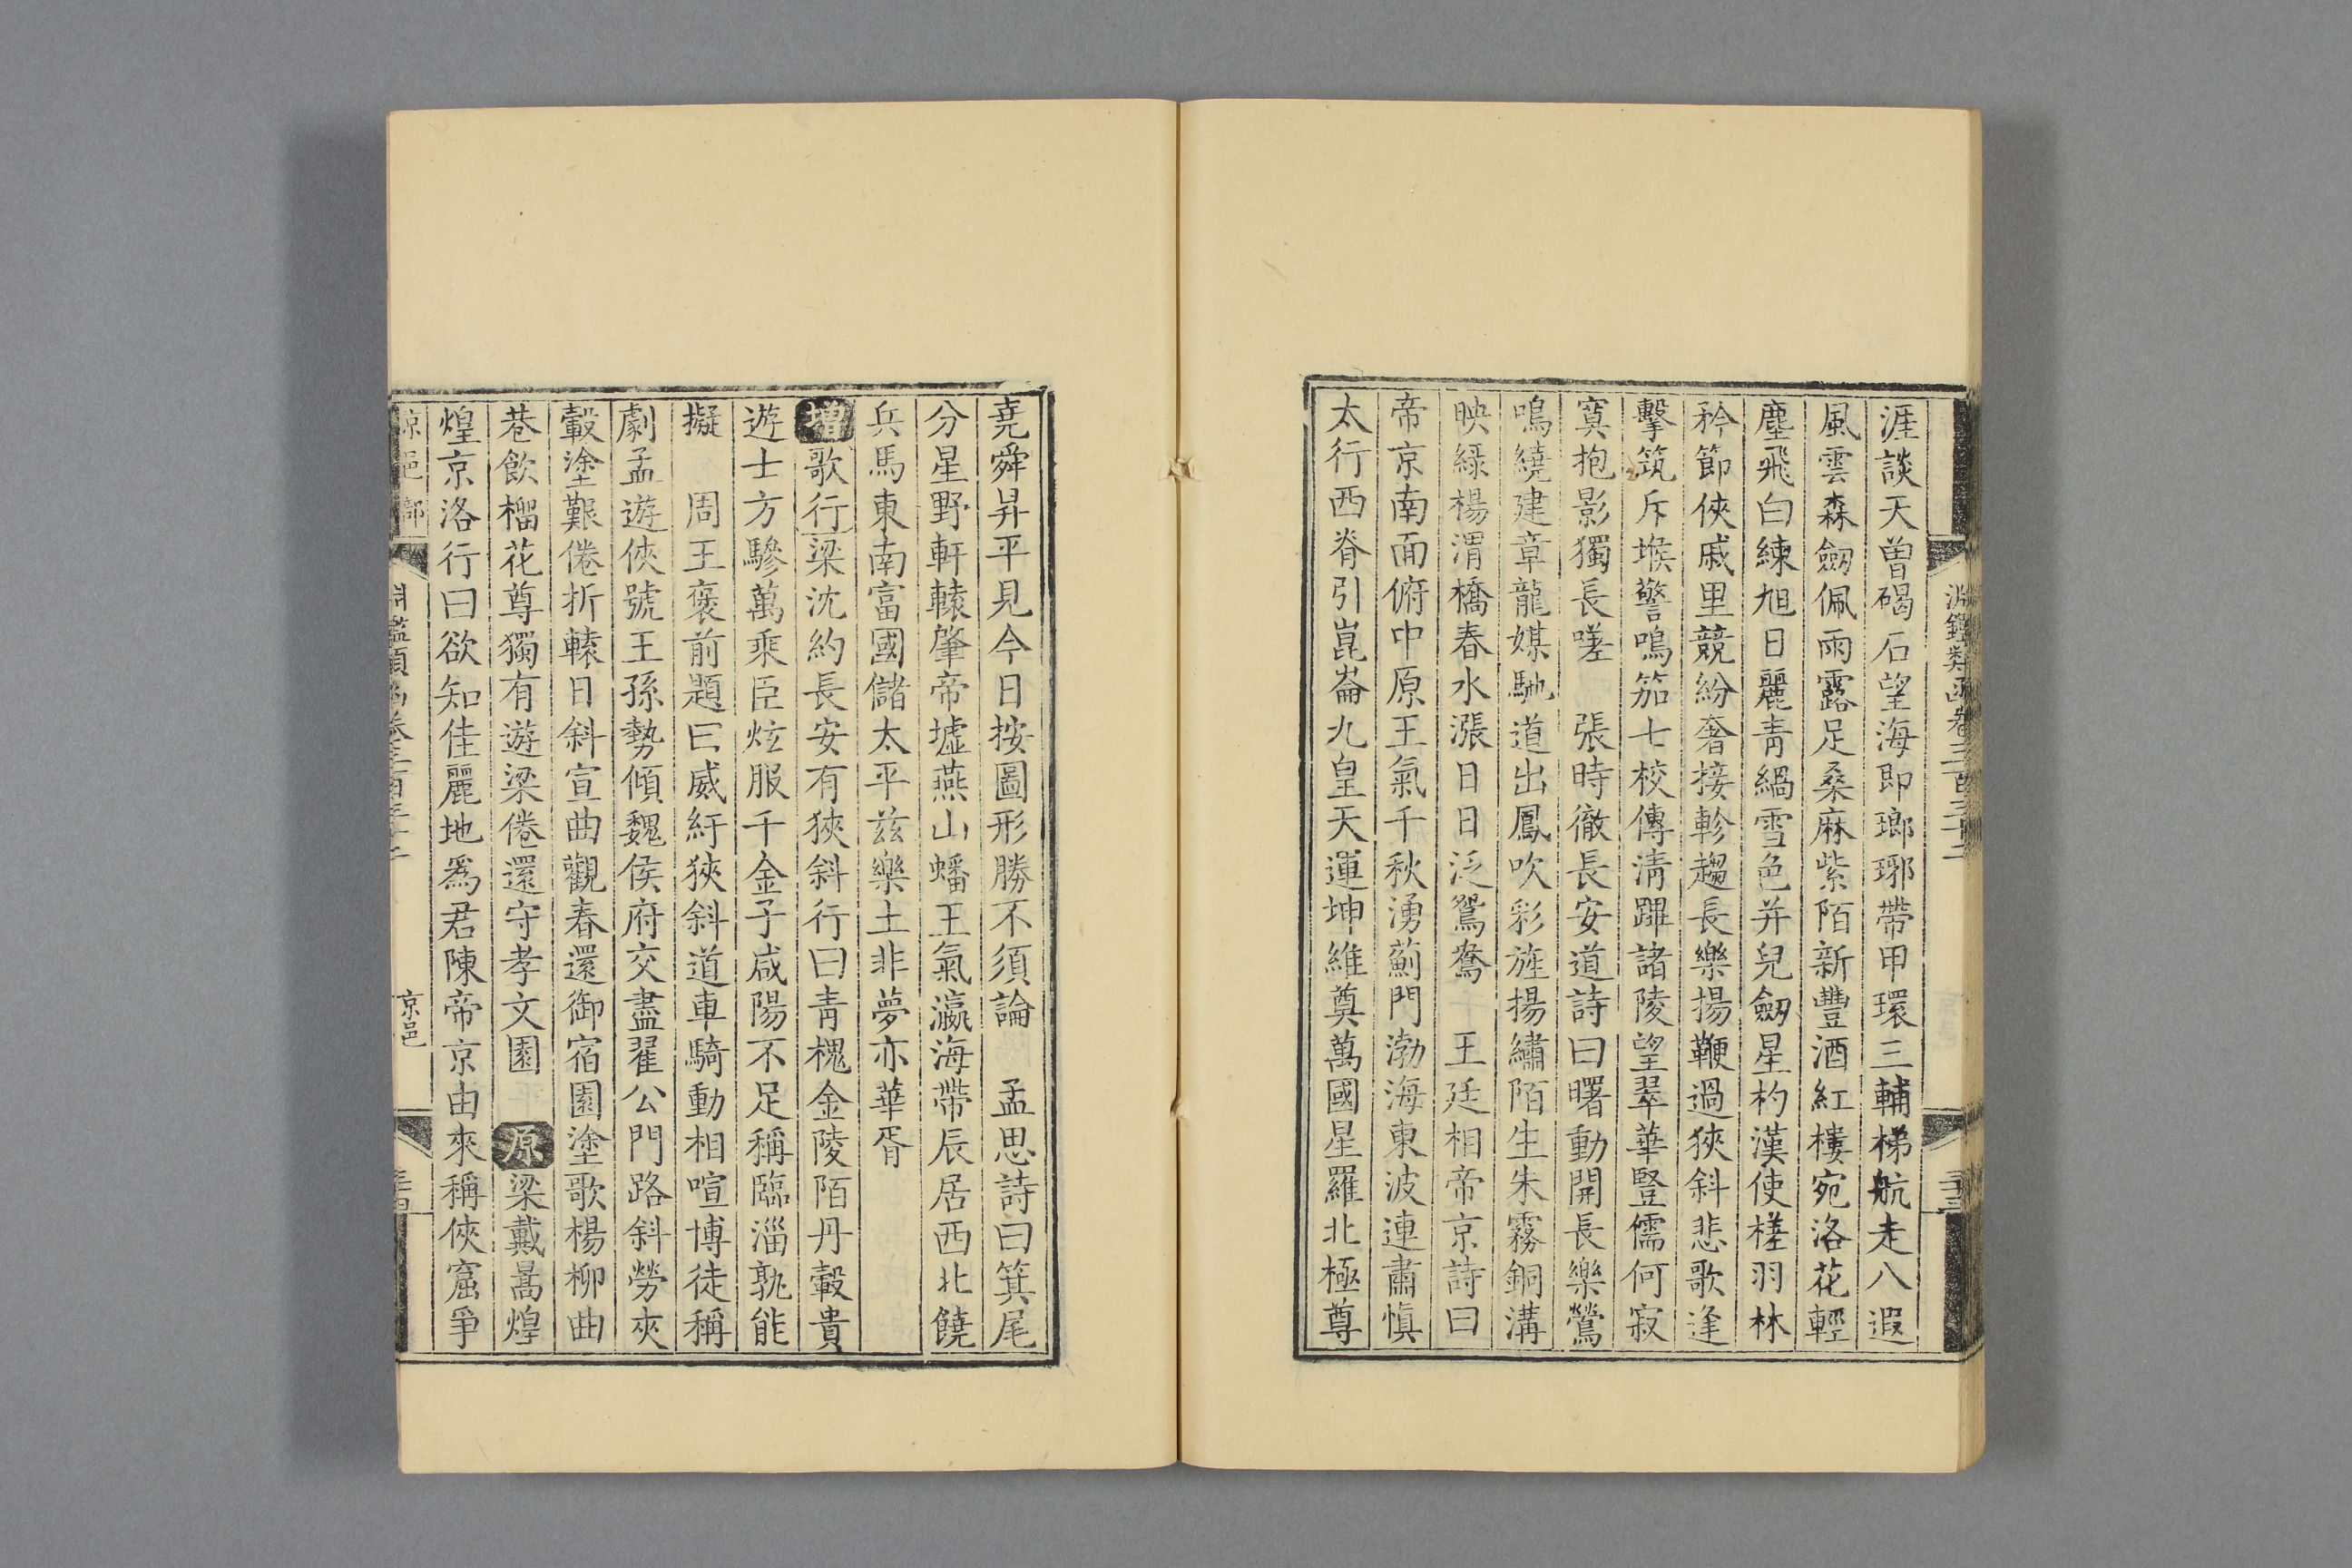 淵鑑類函卷三百三十三
三十三
涯談天曾碣石望海即瑯琊帶甲環三輔梯航走八遐
風雲森劒佩雨露足桑麻紫陌新豐酒紅樓宛洛花輕
塵飛白練旭日麗青緺雪色并兒劒星杓漢使槎羽林
矜節俠戚里競紛奢接軫趨長樂揚鞭過狹斜悲歌逢
擊筑斥堠警鳴笳七校傳清蹕諸陵望翠華豎儒何寂
寞抱影獨長嗟　張時徹長安道詩曰曙動開長樂鶯
鳴繞建章龍媒馳道出鳳吹彩旌揚繡陌生朱霧銅溝
映緑楊渭橋春水漲日日泛鴛鴦　王廷相帝京詩曰
帝京南面俯中原王氣千秋湧薊門渤海東波連肅慎
太行西脊引崑崙九皇天運坤維奠萬國星羅北極尊
堯舜昇平見今日按圖形勝不須論　孟思詩曰箕尾
分星野軒轅肇帝墟燕山蟠王氣瀛海帶辰居西北饒
兵馬東南富國儲太平茲樂土非夢亦華胥
增歌行梁沈約長安有狹斜行曰青槐金陵陌丹轂貴
遊士方驂萬乘臣炫服千金子咸陽不足稱臨淄孰能
擬　周王褒前題曰威紆狹斜道車騎動相喧博徒稱
劇孟遊俠號王孫勢傾魏侯府交盡翟公門路斜勞夾
轂塗艱倦折轅日斜宣曲觀春還御宿園塗歌楊柳曲
巷飲榴花尊獨有遊梁倦還守孝文園　原梁戴暠煌
煌京洛行曰欲知佳麗地爲君陳帝京由來稱俠窟爭
京邑部
淵鑑類函卷三百三十三
京邑
三十四